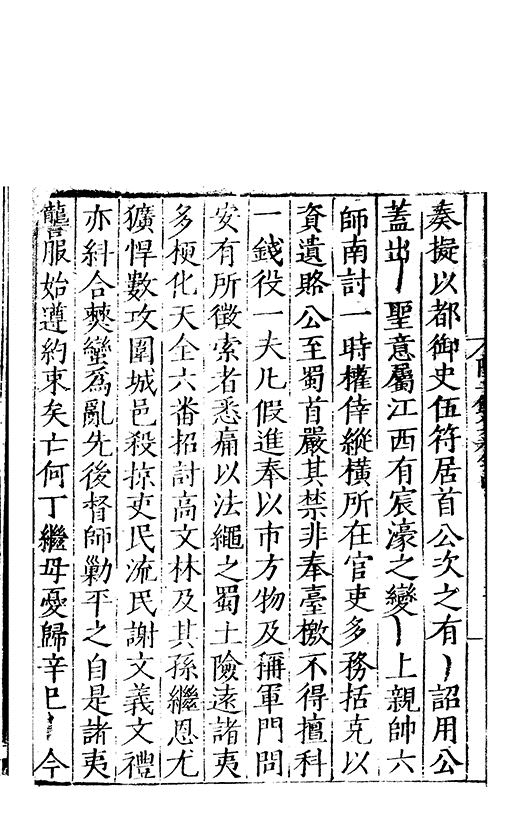 奏擬以都御史伍符居首公次之有詔用公
蓋出聖意屬江西有宸濠之變上親帥六
師南討一時權倖縱橫所在官吏多務括克以
資遺賂公至蜀首嚴其禁非奉臺檄不得擅科
一錢役一夫凡假進奉以市方物及稱軍門問
安有所徵索者悉痛以法繩之蜀土險遠諸夷
多梗化天全六番招討高文林及其孫繼恩尤
獷悍數攻圍城邑殺掠吏民流民謝文義文禮
亦糾合僰蠻爲亂先後督師勦平之自是諸夷
讋服始遵約束矣亡何丁繼母憂歸辛巳今